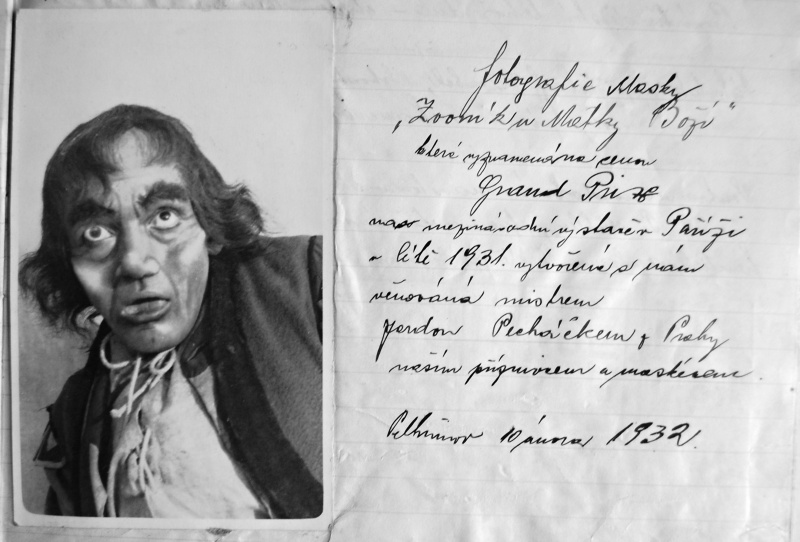 fotografie Masky
„Zvoník u Matky Boží"
která vyznamenána cenou
Grand Prix
na mezinárodní výstavě v Paříži
v létě 1931. vytvořená a nám
věnována mistrem
Pecháčkem z Prahy
naším příznivcem a maskérem.
Pelhřimov 10 února 1932.